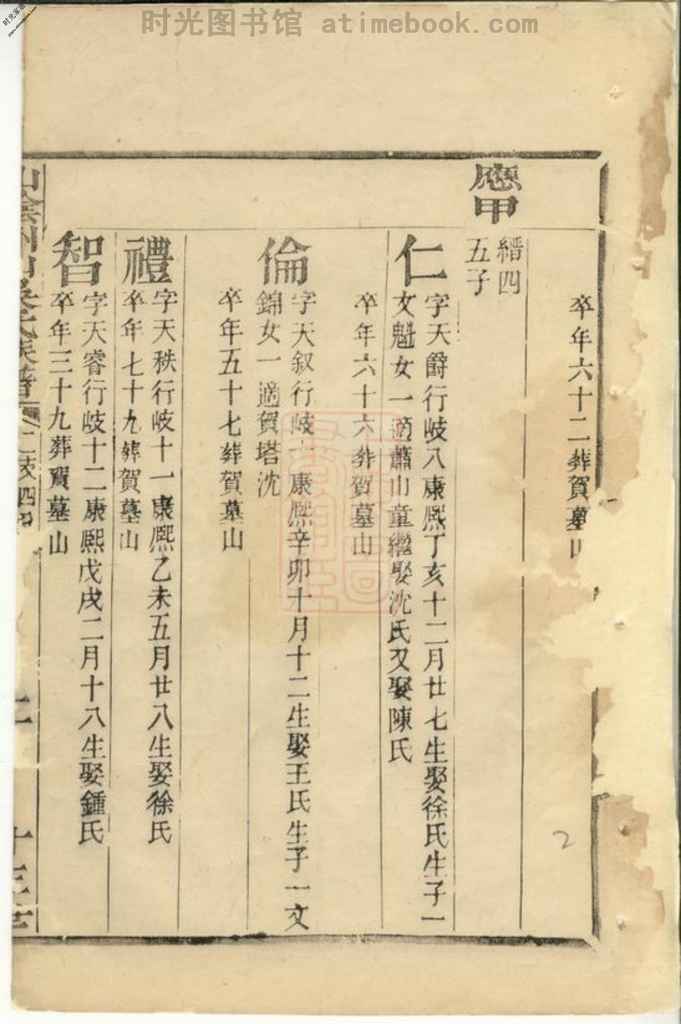 时光图书馆 atimebook.com
卒年六十二葬賀墓山
應甲
縉四
五子
仁
字天爵行歧八康熙丁亥十二月廿七生娶徐氏生子一
文魁女一適蕭山童繼娶沈氏又娶陳氏
卒年六十六葬賀墓山
倫
字天叙行歧十康熙辛卯十月十二生娶王氏生子一文
錦女一適賀塔沈
卒年五十七葬賀墓山
禮
字天秩行歧十一康熙乙未五月廿八生娶徐氏
卒年七十九葬賀墓山
智
字天睿行歧十二康熙戊戌二月十八生娶鍾氏
卒年三十九葬賀墓山
山陰州山吳氏族譜
二支四
十三世
2